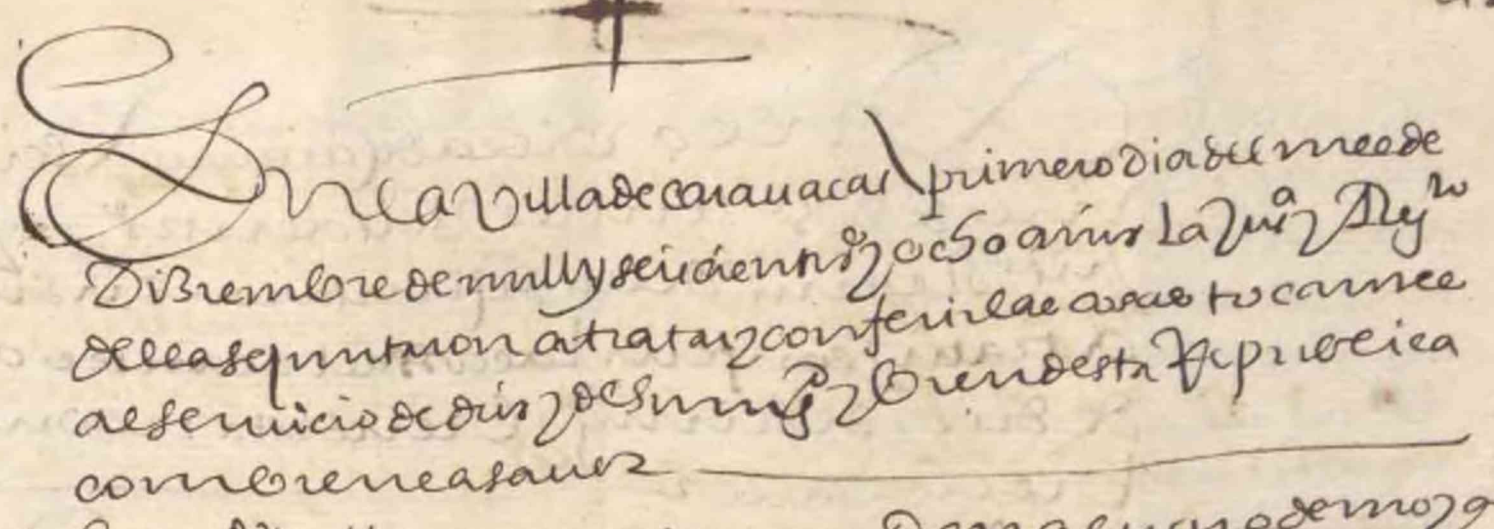 En la Villa de carauaca al primero dia del mes de
Diziembre de mill y seiscientos y ocho años La Jusª y Regto
della se juntaron a tratar y conferir las cosas tocantes
al seruicio de dios y de su magd y bien desta Republica
combiene a sauer